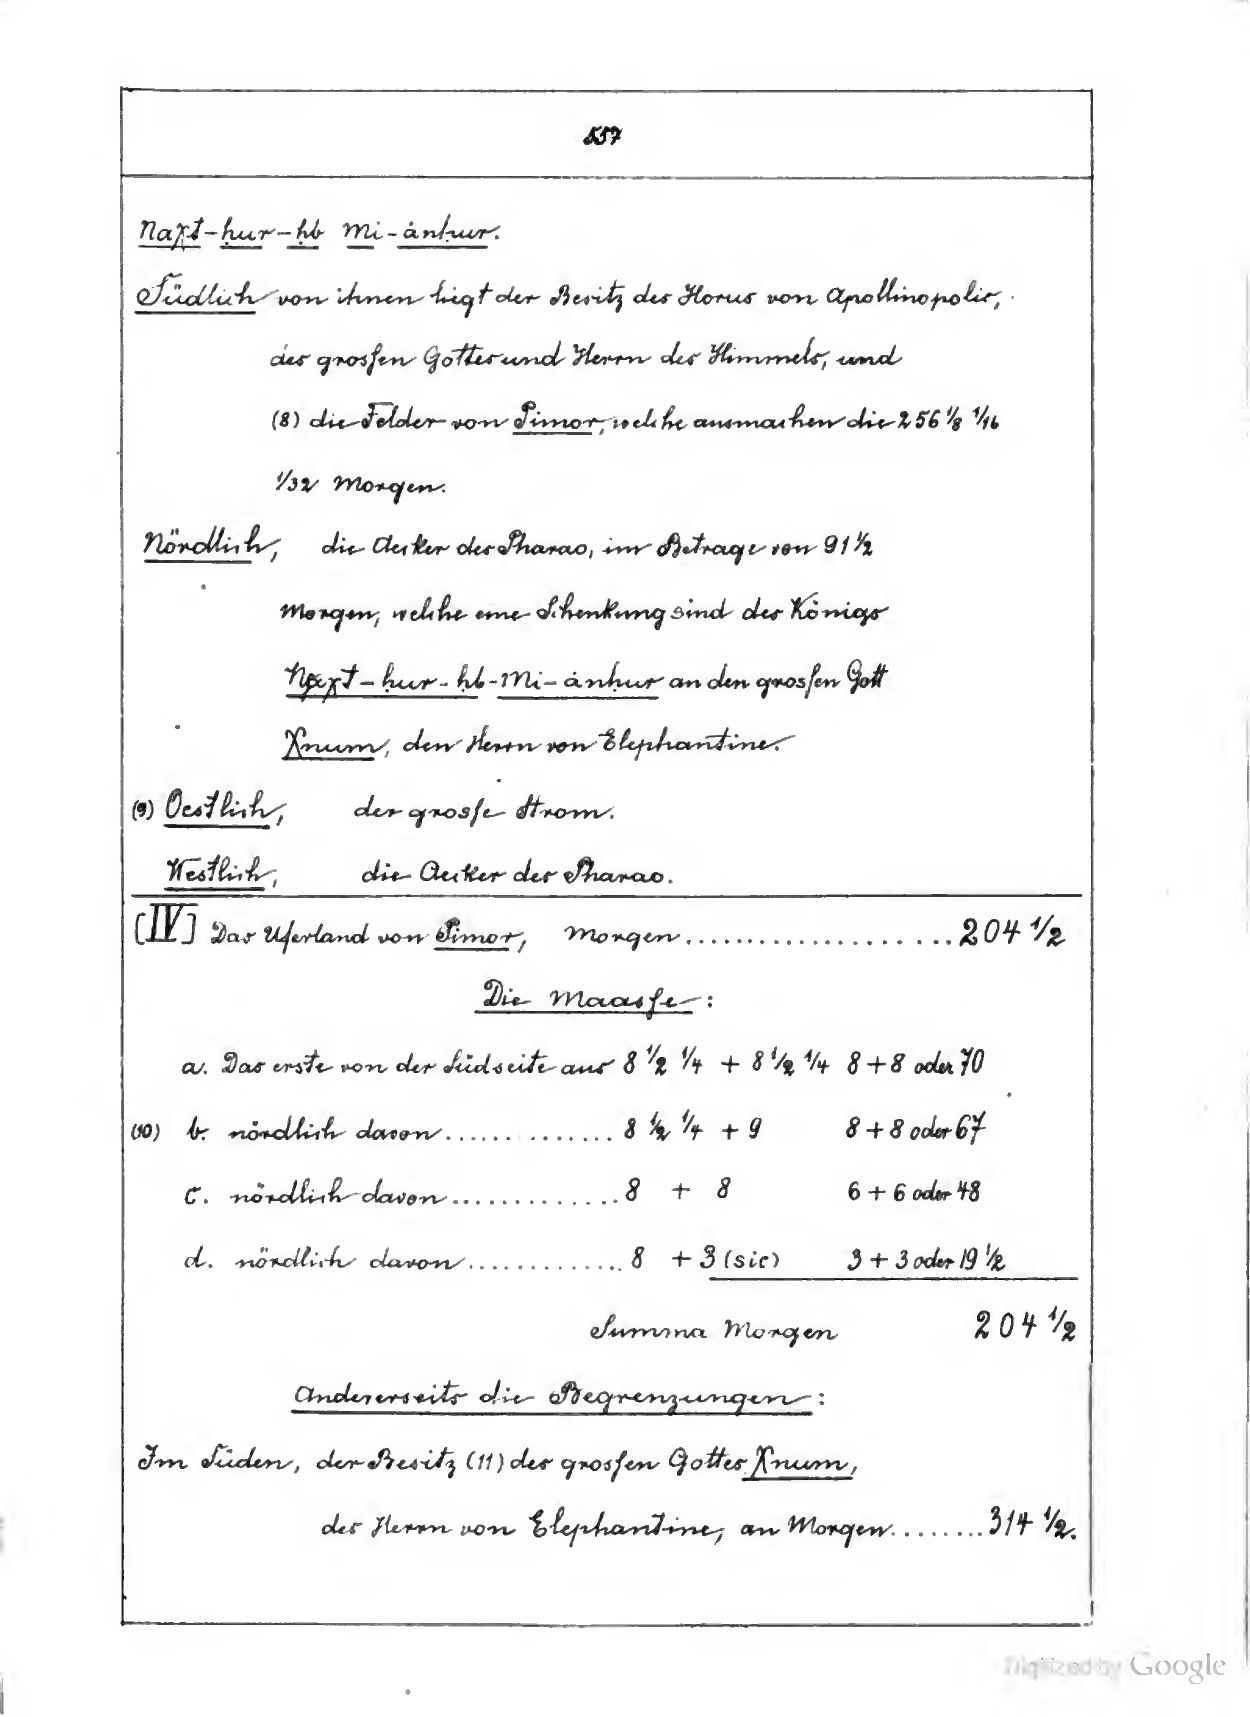 557
Naχt-ḥur-ḥb Mi-ȧnḥur.
Südlich von ihnen liegt der Besitz des Horus von Apollinopolis,
des grossen Gottes und Herrn des Himmels, und
(8) die Felder von Pimor, welche ausmachen die 256 1/8 1/16
1/32 Morgen.
Nördlich, die Aecker des Pharao, im Betrage von 91 1/2
Morgen, welche eine Schenkung sind des Königs
Naχt-ḥur-ḥb-Mi-ȧnḥur an den grossen Gott
Xnum, den Herrn von Elephantine.
(9) Oestlich, der grosse Strom.
Westlich, die Aecker des Pharao.
[IV] Das Uferland von Pimor, Morgen..................... 204 1/2
Die Maasse:
a. Das erste von der Südseite aus 8 1/2 1/4 + 8 1/2 1/4 8 + 8 oder 70
(10) b. nördlich davon.............. 8 1/2 1/4 + 9 8 + 8 oder 67
c. nördlich davon............. 8 + 8 6 + 6 oder 48
d. nördlich davon............. 8 + 3 (sic) 3 + 3 oder 19 1/2
Summa Morgen 204 1/2
Andererseits die Begrenzungen:
Im Süden, der Besitz (11) des grossen Gottes Xnum,
des Herrn von Elephantine, an Morgen........ 314 1/2.
Digitized by Google